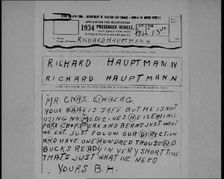 1934 PASSENGER VEHICLE
RICHARD HAUPTMANN
RICHARD HAUPTMANN
RICHARD HAUPTMANN
MR. CHAS. LINBERG
YOUR BABY IS SAFE BUT HE IS NOT
USING NO MEDICINES. HE IS EATING
PORK CHOP PORK AND BEANS JUST WHAT
WE EAT. JUST FOLLOW OUR DIRECTION
AND HAVE ONE HUNDRED THOUSAND
BUCKS READY IN VERY SHORT TIME
THAT'S JUST WHAT WE NEED
YOURS B.H.